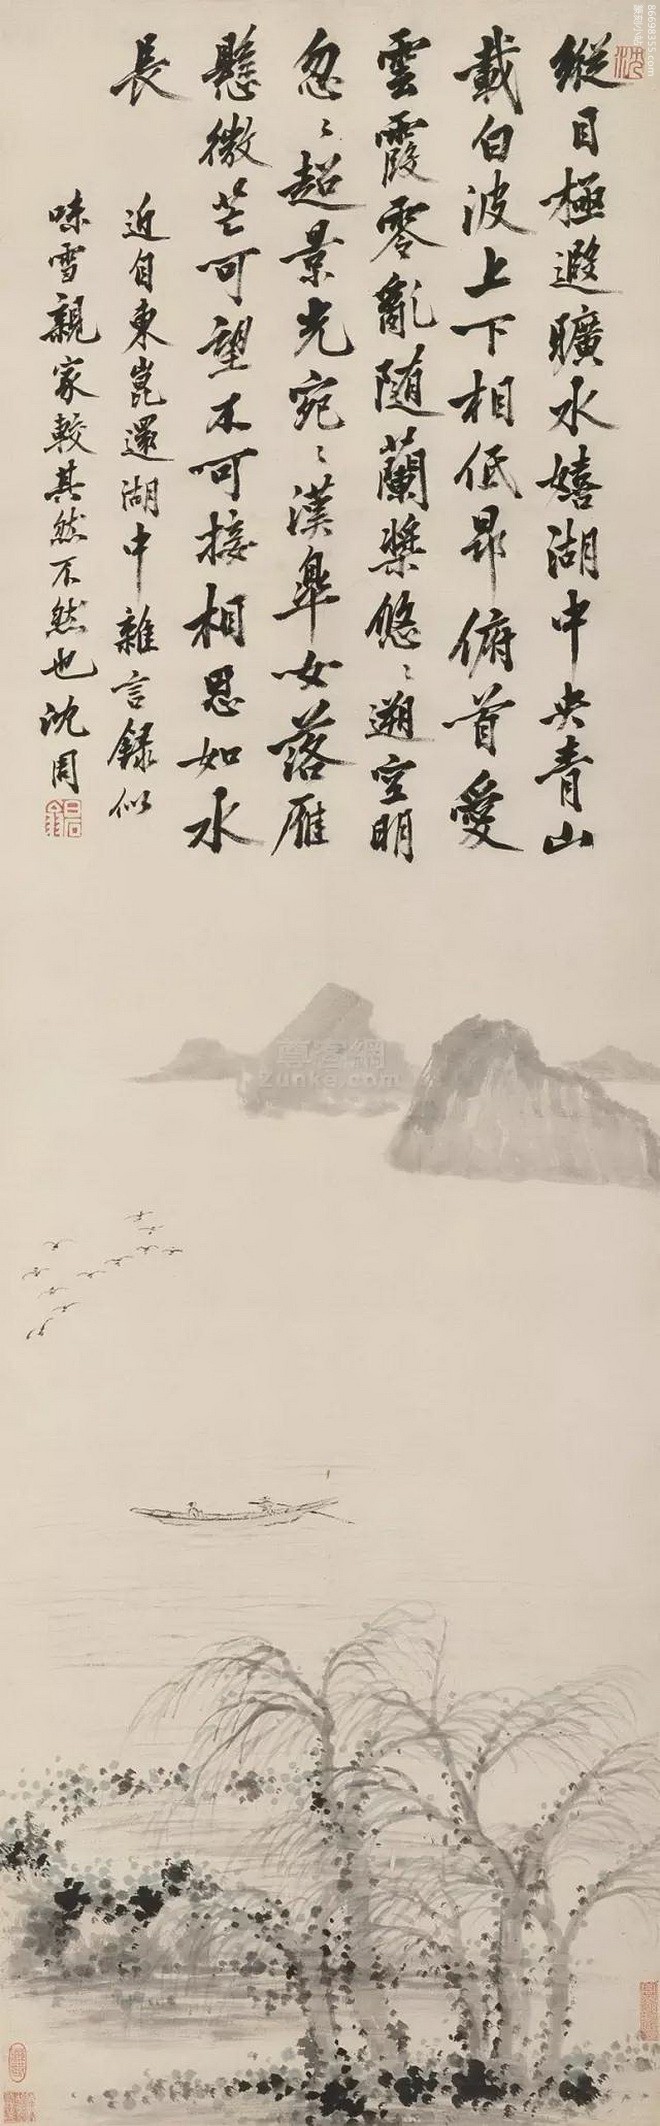 縱目極遐曠水嬉湖中央青山
載白波上下相低昂俯首愛
雲霞零亂随蘭槳悠〻遡空明
忽〻超景光宛〻漢皐女落雁
懸微芒可望不可接相思如水
長
近自東崑還湖中雜言録似
味雪親家較其然不然也沈周
尊客網
zunke.com
86698355.com